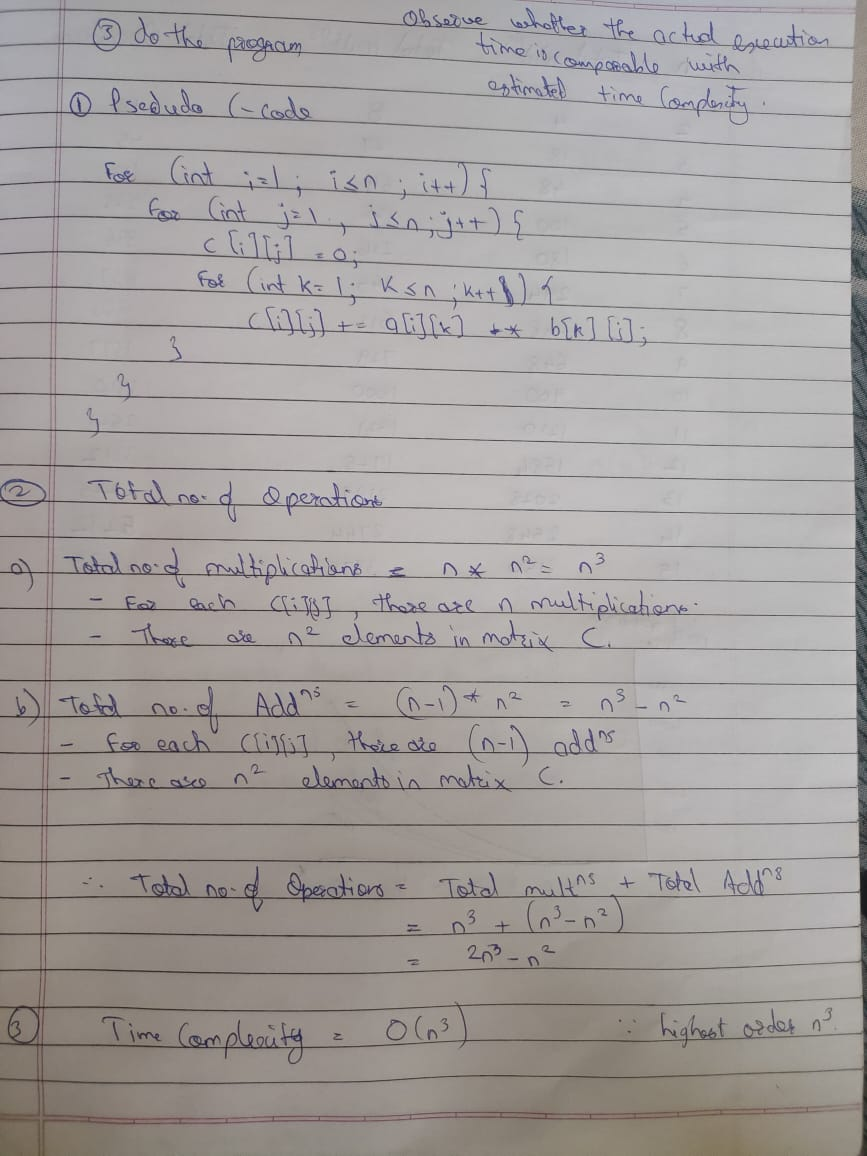 ③ do the program
Observe whether the actual execution
time is comparable with
estimated time Complexity.
① Psedudo C-code
For (int i=1; i≤n; i++) {
for (int j=1, j≤n; j++) {
c[i][j] = 0;
For (int k=1; k≤n; k++) {
c[i][j] += a[i][k] * b[k][i];
}
}
}
② Total no. of Operations
a) Total no. of multiplications = n * n² = n³
- For each C[i][j], there are n multiplications.
- There are n² elements in matrix C.
b) Total no. of Addⁿˢ = (n-1) * n² = n³ - n²
- For each C[i][j], there are (n-1) addⁿˢ
- There are n² elements in matrix C.
∴ Total no. of Operations = Total multⁿˢ + Total Addⁿˢ
= n³ + (n³ - n²)
= 2n³ - n²
③ Time Complexity = O(n³) ∵ highest order n³.